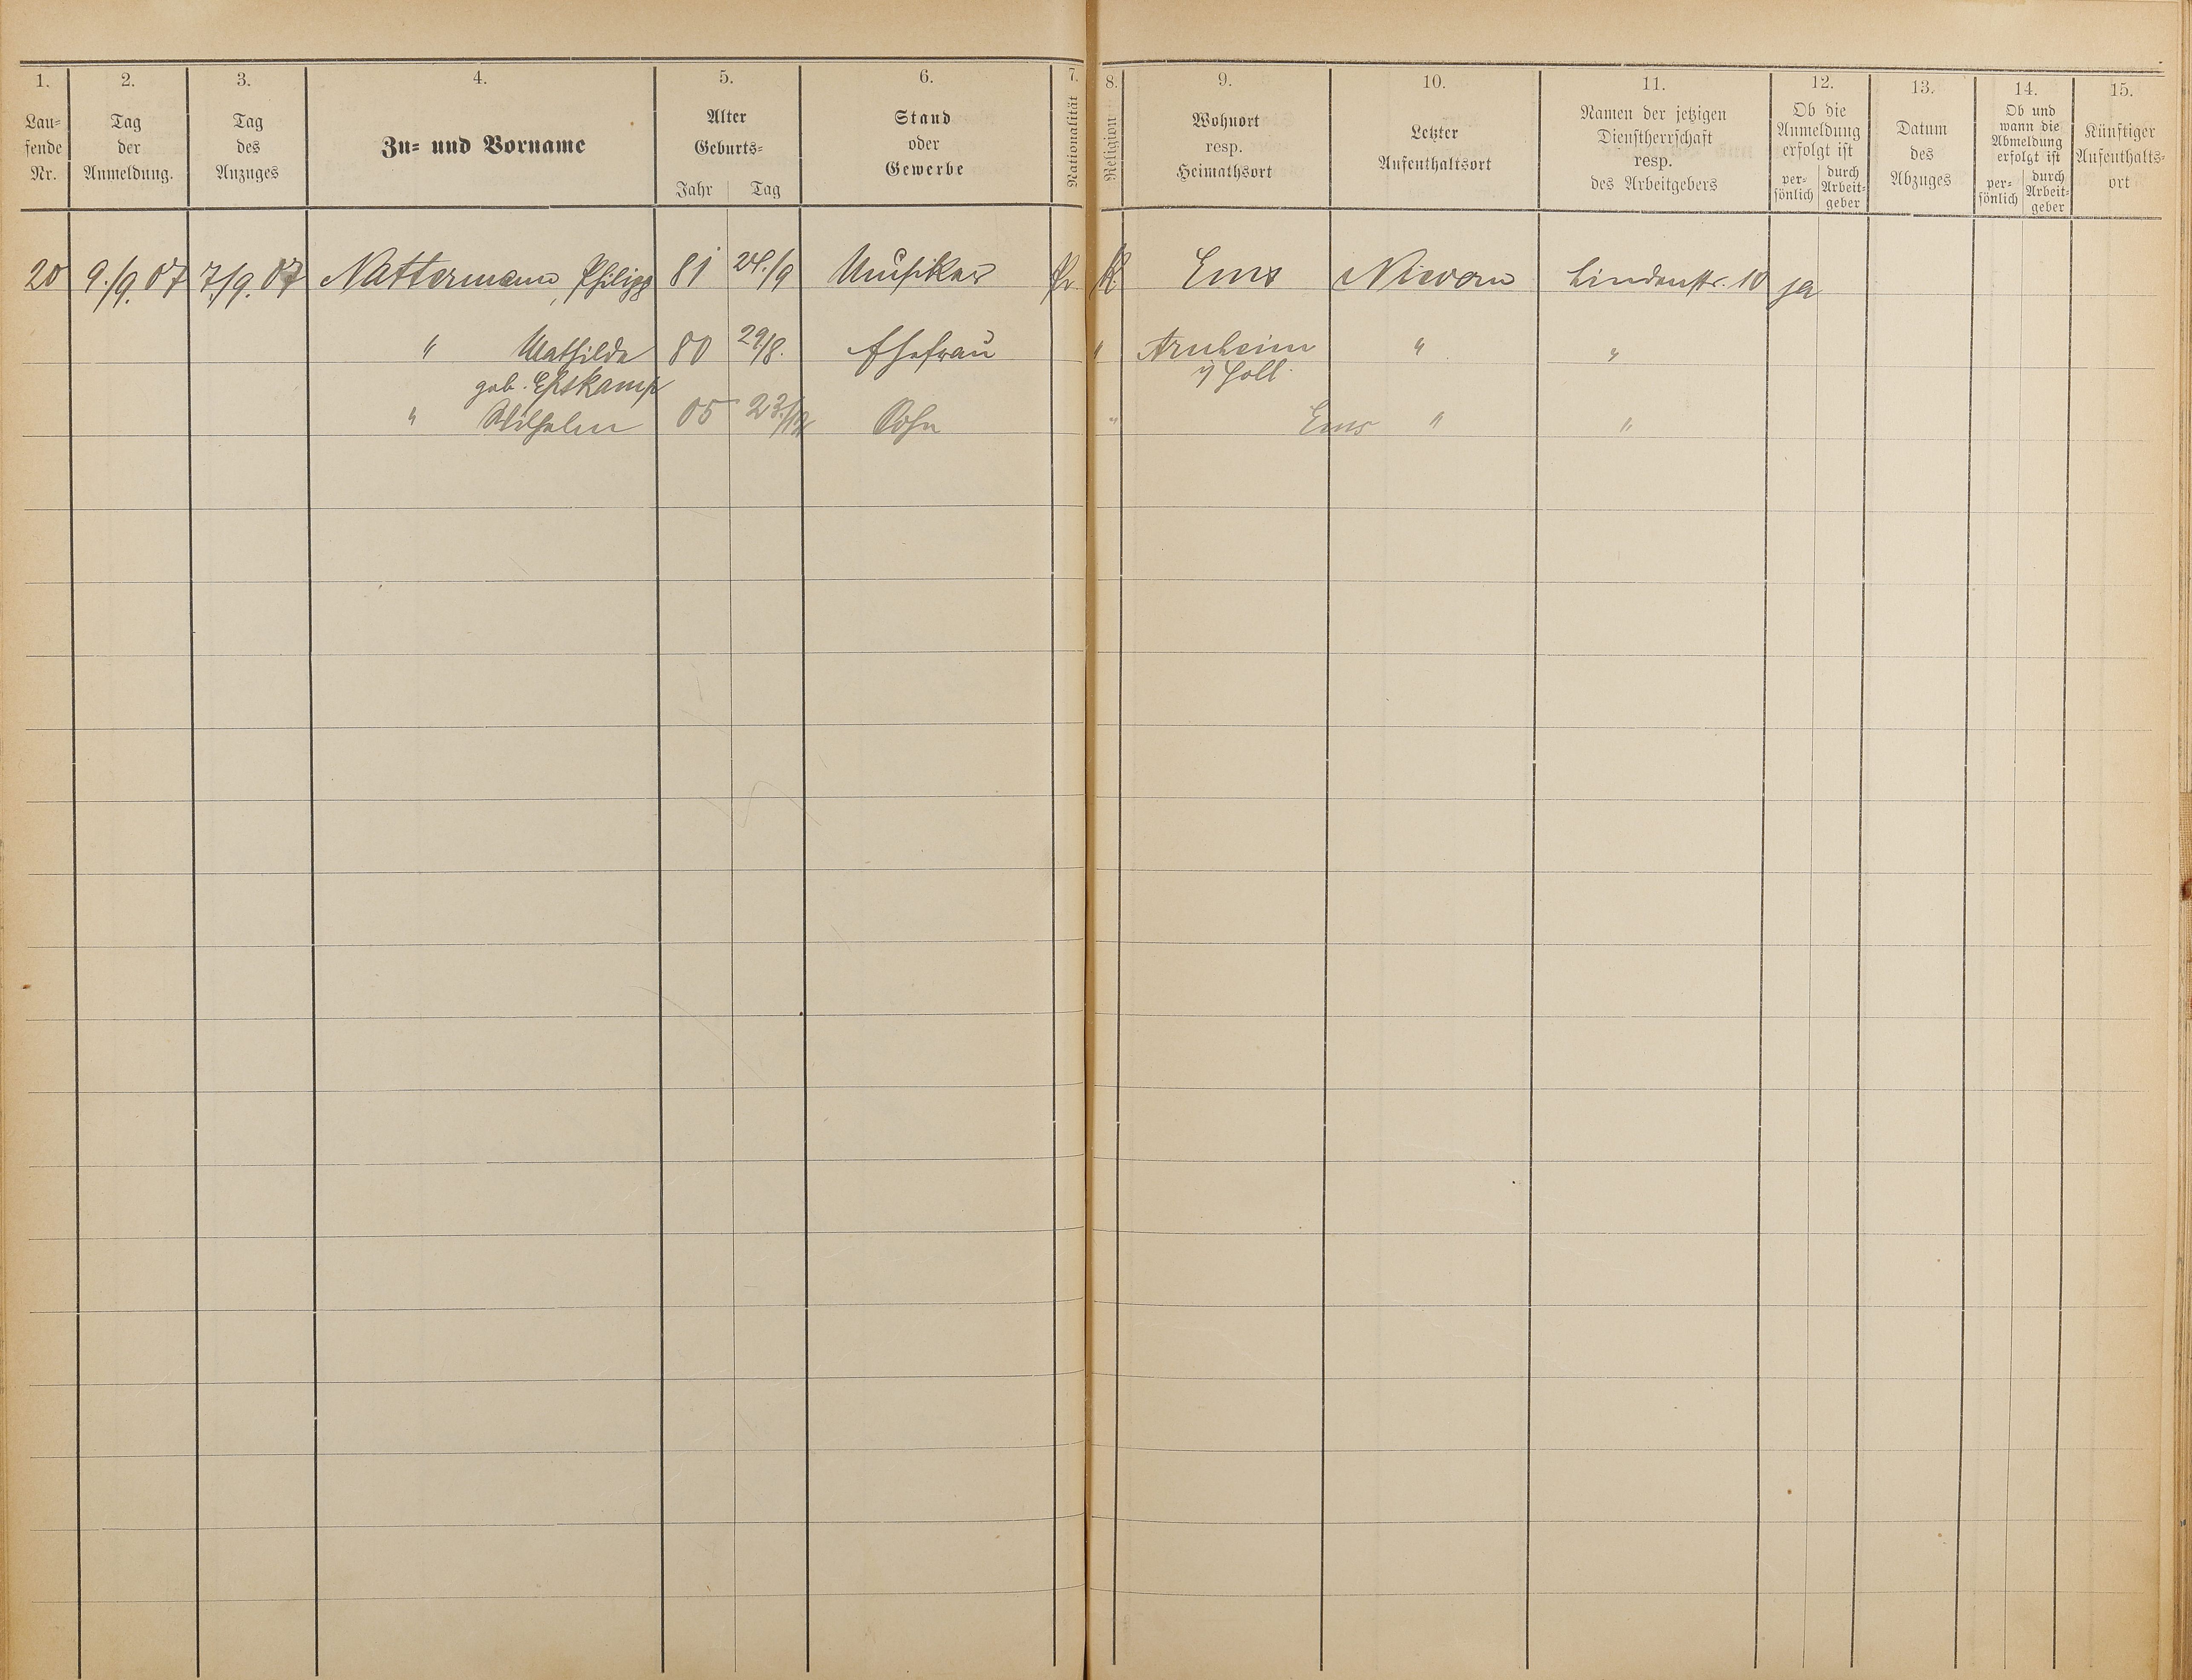 1. 2. 3. 4. 5. 6. 7. 8. 9. 10. 11. 12. 13. 14. 15.
Lau=
fende
Nr.
Tag
der
Anmeldung.
Tag
des
Anzuges
Zu= und Vorname
Alter
Geburts=
Jahr Tag
Stand
oder
Gewerbe
Nationalität
Religion
Wohnort
resp.
Heimathsort
Letzter
Aufenthaltsort
Namen der jetzigen
Dienstherrschaft
resp.
des Arbeitgebers
Ob die
Anmeldung
erfolgt ist
per=
sönlich
durch
Arbeit=
geber
Datum
des
Abzuges
Ob und
wann die
Abmeldung
erfolgt ist
per=
sönlich
durch
Arbeit=
geber
Künftiger
Aufenthalts=
ort
20 9./9. 07 7./9. 07 Nattermann, Philipp 81 24./9 Musiker Pr. K. Ems Nievern Lindenstr. 10 ja
" Mathilde 80 29/8. Ehefrau " Arnheim " "
geb. i/ Holl.
" Wilhelm 05 23./12 Sohn " Ems " "